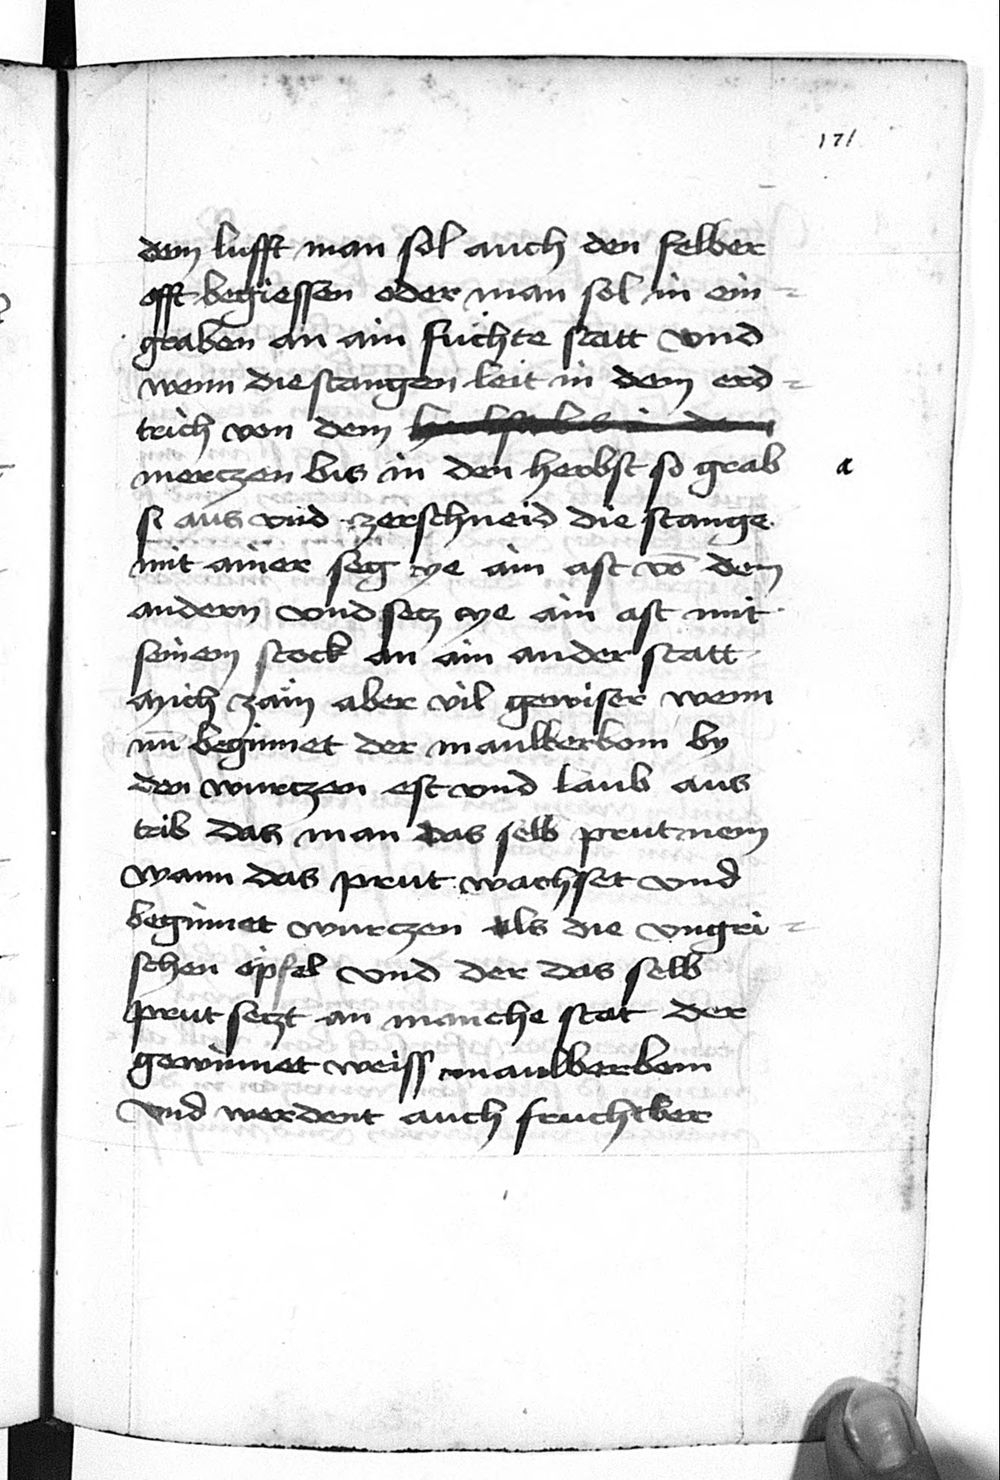 171
dem lufft man sol auch den felber
offt begiessen oder man sol in ein-
graben an ain fuchte statt vnd
wenn die stangen leit in dem erd-
trich von dem herbst bis in dem
merczen bis in den herbst so grab a
si aus vnd zerschneid die stange
mit ainer seg ye ain ast vō dem
andern vnd secz ye ain ast mit
seinem stock an ain ander statt
aber vil gewiser wenn
nū beginnet der maulberbom by
den wurtzen est vnd laub aus
trib das man das selb prut nem
wann das prut wachset vnd
beginnet wurczen als die vngri-
schen öpfel vnd der das selb
prut seczt an manche stat der
gewinnet weiss maulberbem
vnd werdent auch fruchtber